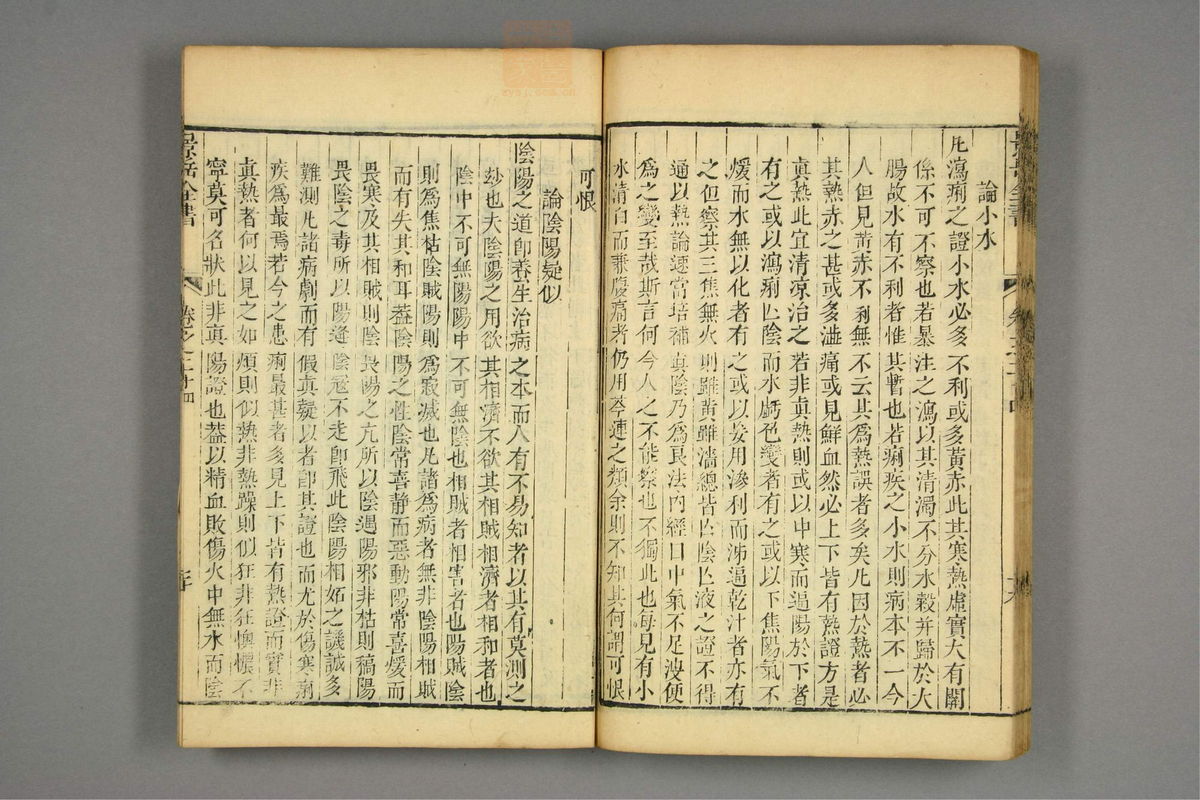 論小水
凡瀉痢之證小水必多不利或多黃赤此其寒熱虛實大有關
係不可不察也若暴注之瀉以其清濁不分水穀并歸於大
腸故水有不利者惟其暫也若痢疾之小水則病本不一今
人但見黃赤不利無不云其為熱誤者多矣凡因於熱者必
其熱赤之甚或多澁痛或見鮮血然必上下皆有熱證方是
眞熱此宜清凉治之若非眞熱則或以中寒而逼陽於下者
有之或以瀉痢亡陰而水虧色變者有之或以下焦陽氣不
煖而水無以化者有之或以妄用滲利而沛逼乾汁者亦有
之但察其三焦無火則雖黃雖濇總皆亡陰亡液之證不得
通以熱論速當培補眞陰乃為良法內經曰中氣不足溲便
為之變至哉斯言何今人之不能察也不獨此也每見有小
水清白而兼腹痛者仍用芩連之類余則不知其何謂可恨
可恨
論陰陽疑似
陰陽之道即養生治病之本而人有不易知者以其有莫測之
玅也夫陰陽之用欲其相濟不欲其相賊相濟者相和者也
陰中不可無陽陽中不可無陰也相賊者相害者也陽賊陰
則為焦枯陰賊陽則為寂滅也凡諸為病者無非陰陽相賊
而有失其和耳蓋陰陽之性陰常喜静而惡動陽常喜煖而
畏寒及其相賊則陰畏陽之亢所以陰遇陽邪非枯則稿陽
畏陰之毒所以陽逢陰寇不走即飛此陰陽相妬之譏誠多
難測凡諸病劇而有假眞疑似者即其證也而尤於傷寒痢
疾為最焉若今之患痢最甚者多見上下皆有熱證而實非
眞熱者何以見之如煩則似熱非熱躁則似狂非狂懊憹不
寧莫可名狀此非真陽證也蓋以精血敗傷火中無水而陰
景岳全書
卷之二十四